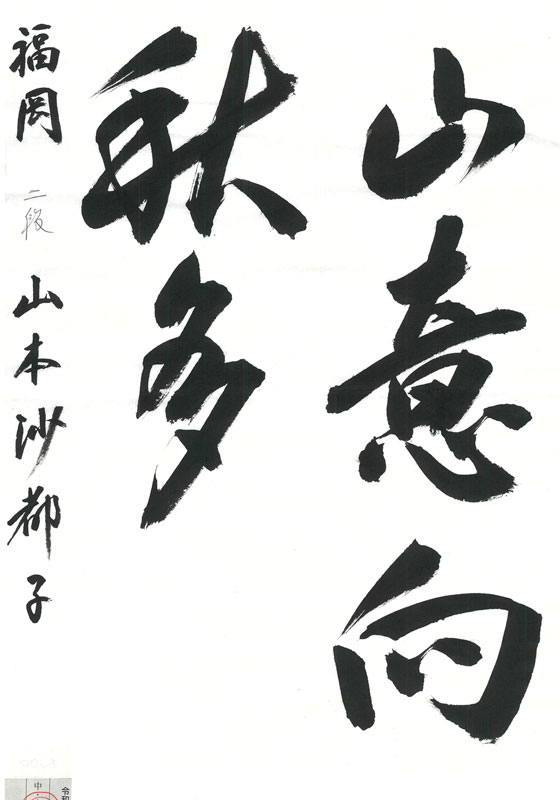 山意向
秋多
福岡 二段 山本沙都子
中
令和